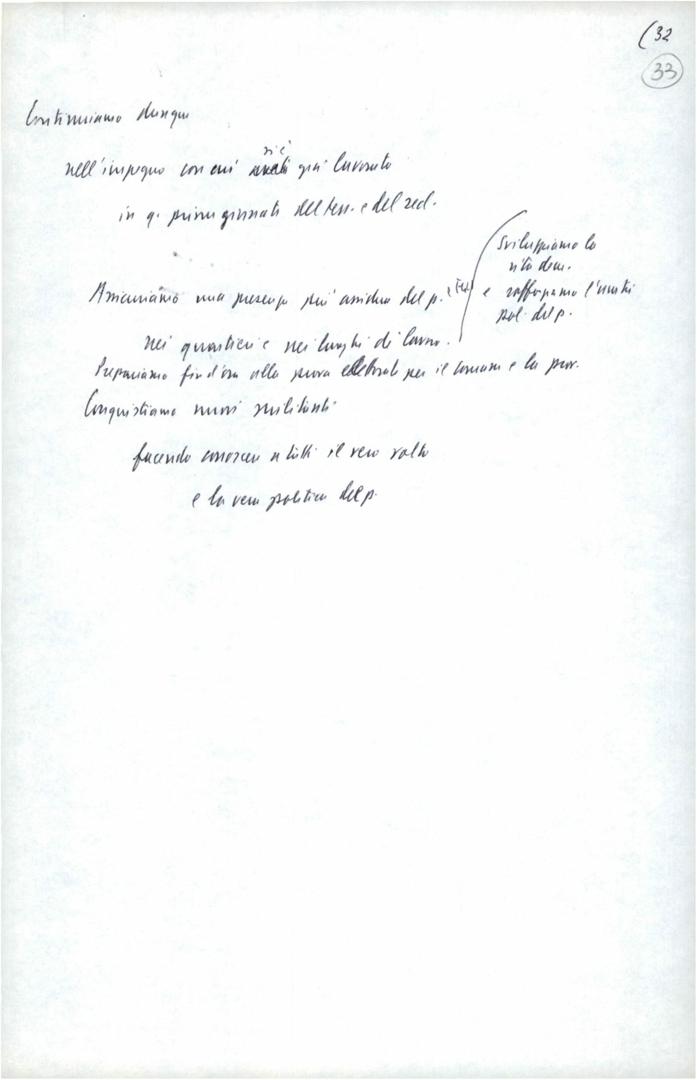 (32
33
Continuiamo dunque
nell'impegno con cui si è già lavorato
in q. prime giornate del tess. e del recl.
Sviluppiamo la
vita dem.
e rafforziamo l'unità
pol. del p.
Assicuriamo una presenza più assidua del p.
nei quartieri e nei luoghi di lavoro.
Prepariamo fin d'ora alla prova elettorale per il comune e la prov.
Conquistiamo nuovi militanti
facendo conoscere a tutti il vero volto
e la vera politica del p.